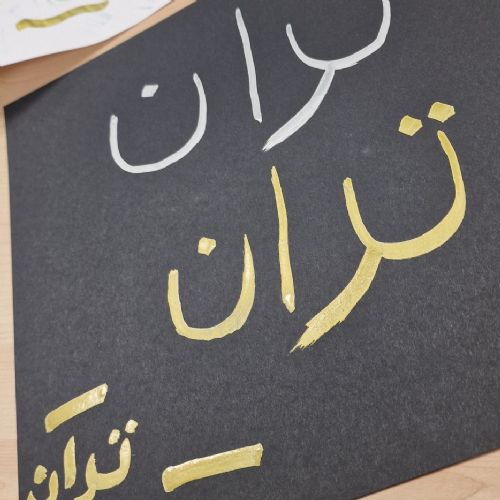 تران
تران
تران